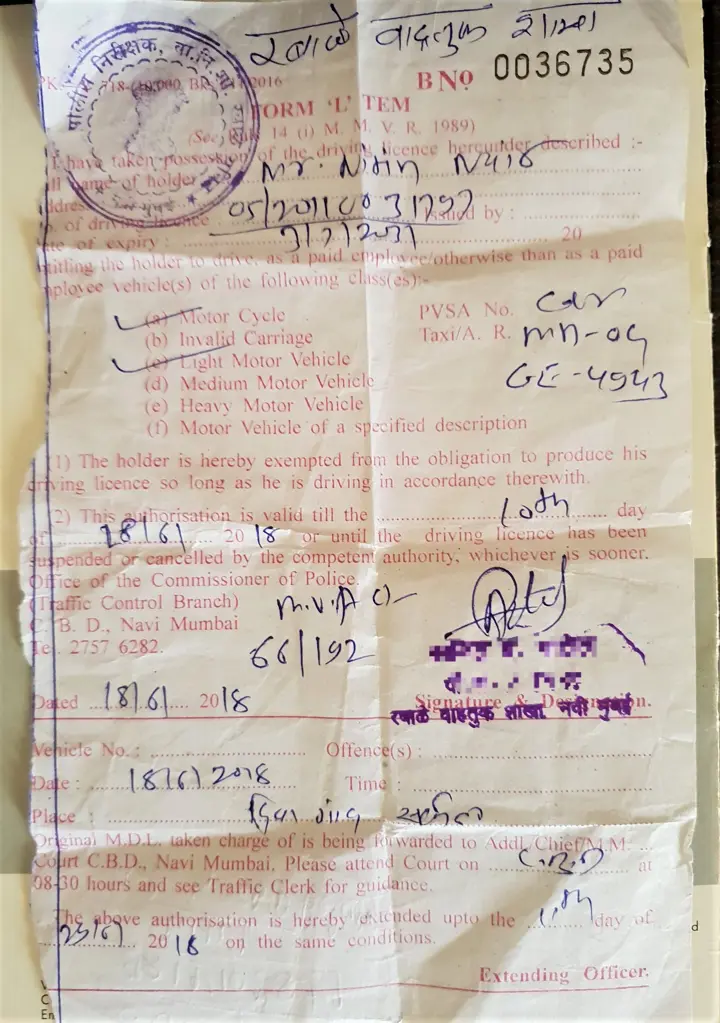 रबाळे वाहतुक शाखा
पोलीस निरीक्षक, वा. नि.
718-(10,000 BK 2016
B No 0036735
FORM 'L' TEM
(See 14 (i) M. M. V. R. 1989)
I have taken possession of the driving licence hereunder described :-
name of holder Mr. Nitin
of driving licence Issued by :
of expiry : 20
entitling the holder to drive, as a paid employee/otherwise than as a paid
employee vehicle(s) of the following class(es):-
(a) Motor Cycle PVSA No. Car
(b) Invalid Carriage Taxi/A. R. MH-04
(c) Light Motor Vehicle GE-4943
(d) Medium Motor Vehicle
(e) Heavy Motor Vehicle
(f) Motor Vehicle of a specified description
(1) The holder is hereby exempted from the obligation to produce his
driving licence so long as he is driving in accordance therewith.
(2) This authorisation is valid till the 10th day
of 28/6/ 2018 or until the driving licence has been
suspended or cancelled by the competent authority, whichever is sooner.
Office of the Commissioner of Police.
(Traffic Control Branch) M.V.A
C. B. D., Navi Mumbai
Tel. 2757 6282. 66/192
Dated 18/6/ 2018 Signature & Designation.
रबाळे वाहतुक शाखा नवी मुंबई
Vehicle No. : Offence(s) :
Date : 18/6/2018 Time :
Place :
Original M.D.L. taken charge of is being forwarded to Addl./Chief/M.M.
Court C.B.D., Navi Mumbai. Please attend Court on C.B.D at
08-30 hours and see Traffic Clerk for guidance.
The above authorisation is hereby extended upto the day of
2018 on the same conditions.
Extending Officer.